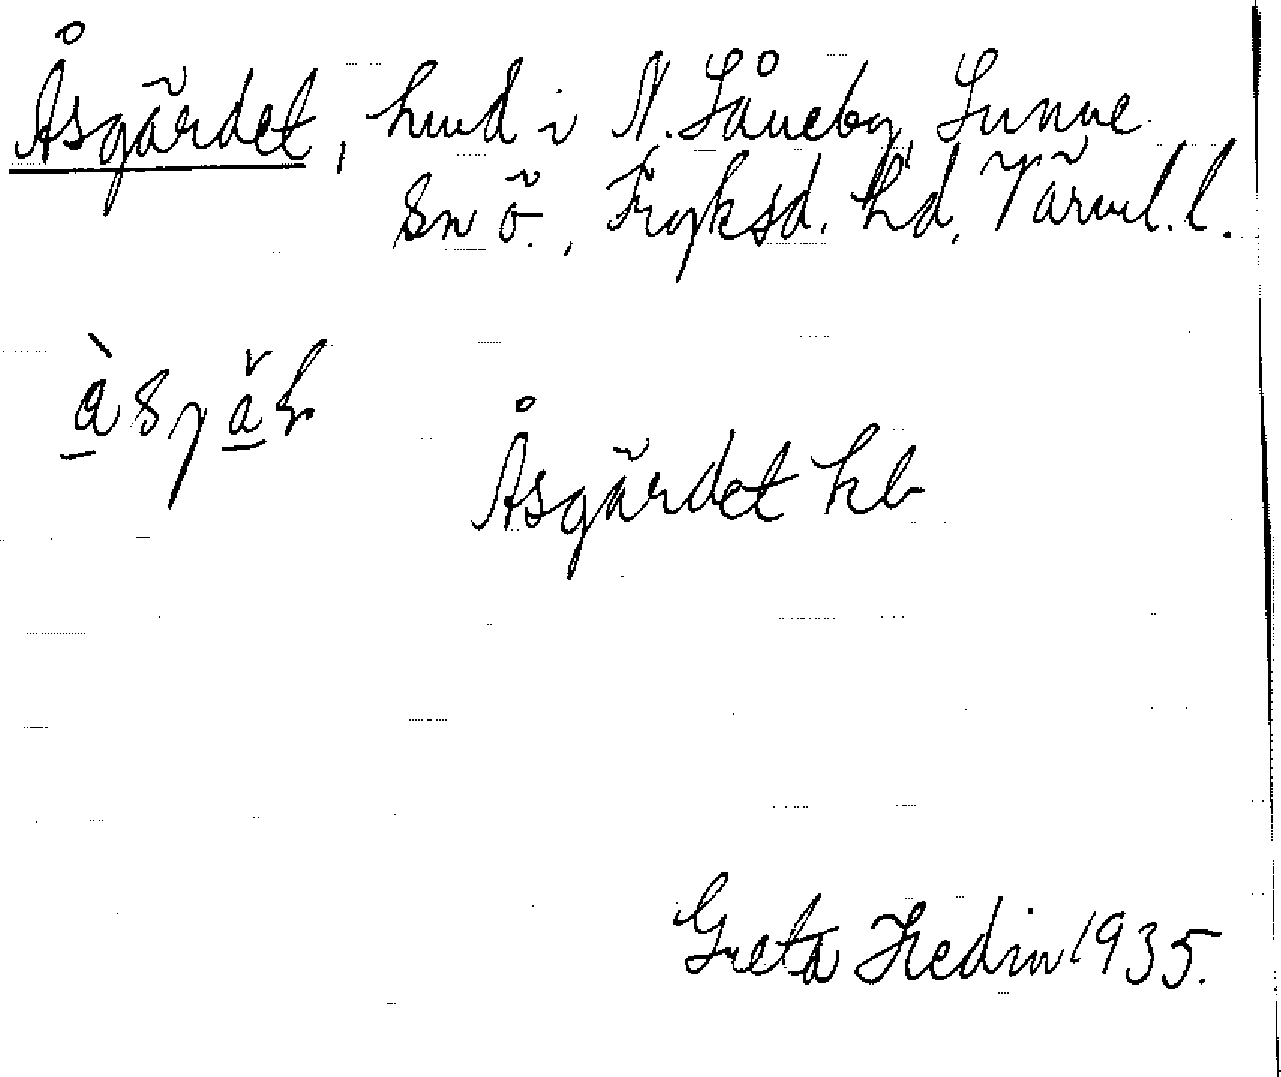 Åsgärdet, hmd i N. Såneby, Sunne
sn ö., Fryksd. hd, Värml. l.
Åsgärdet kb
Greta Hedin 1935.